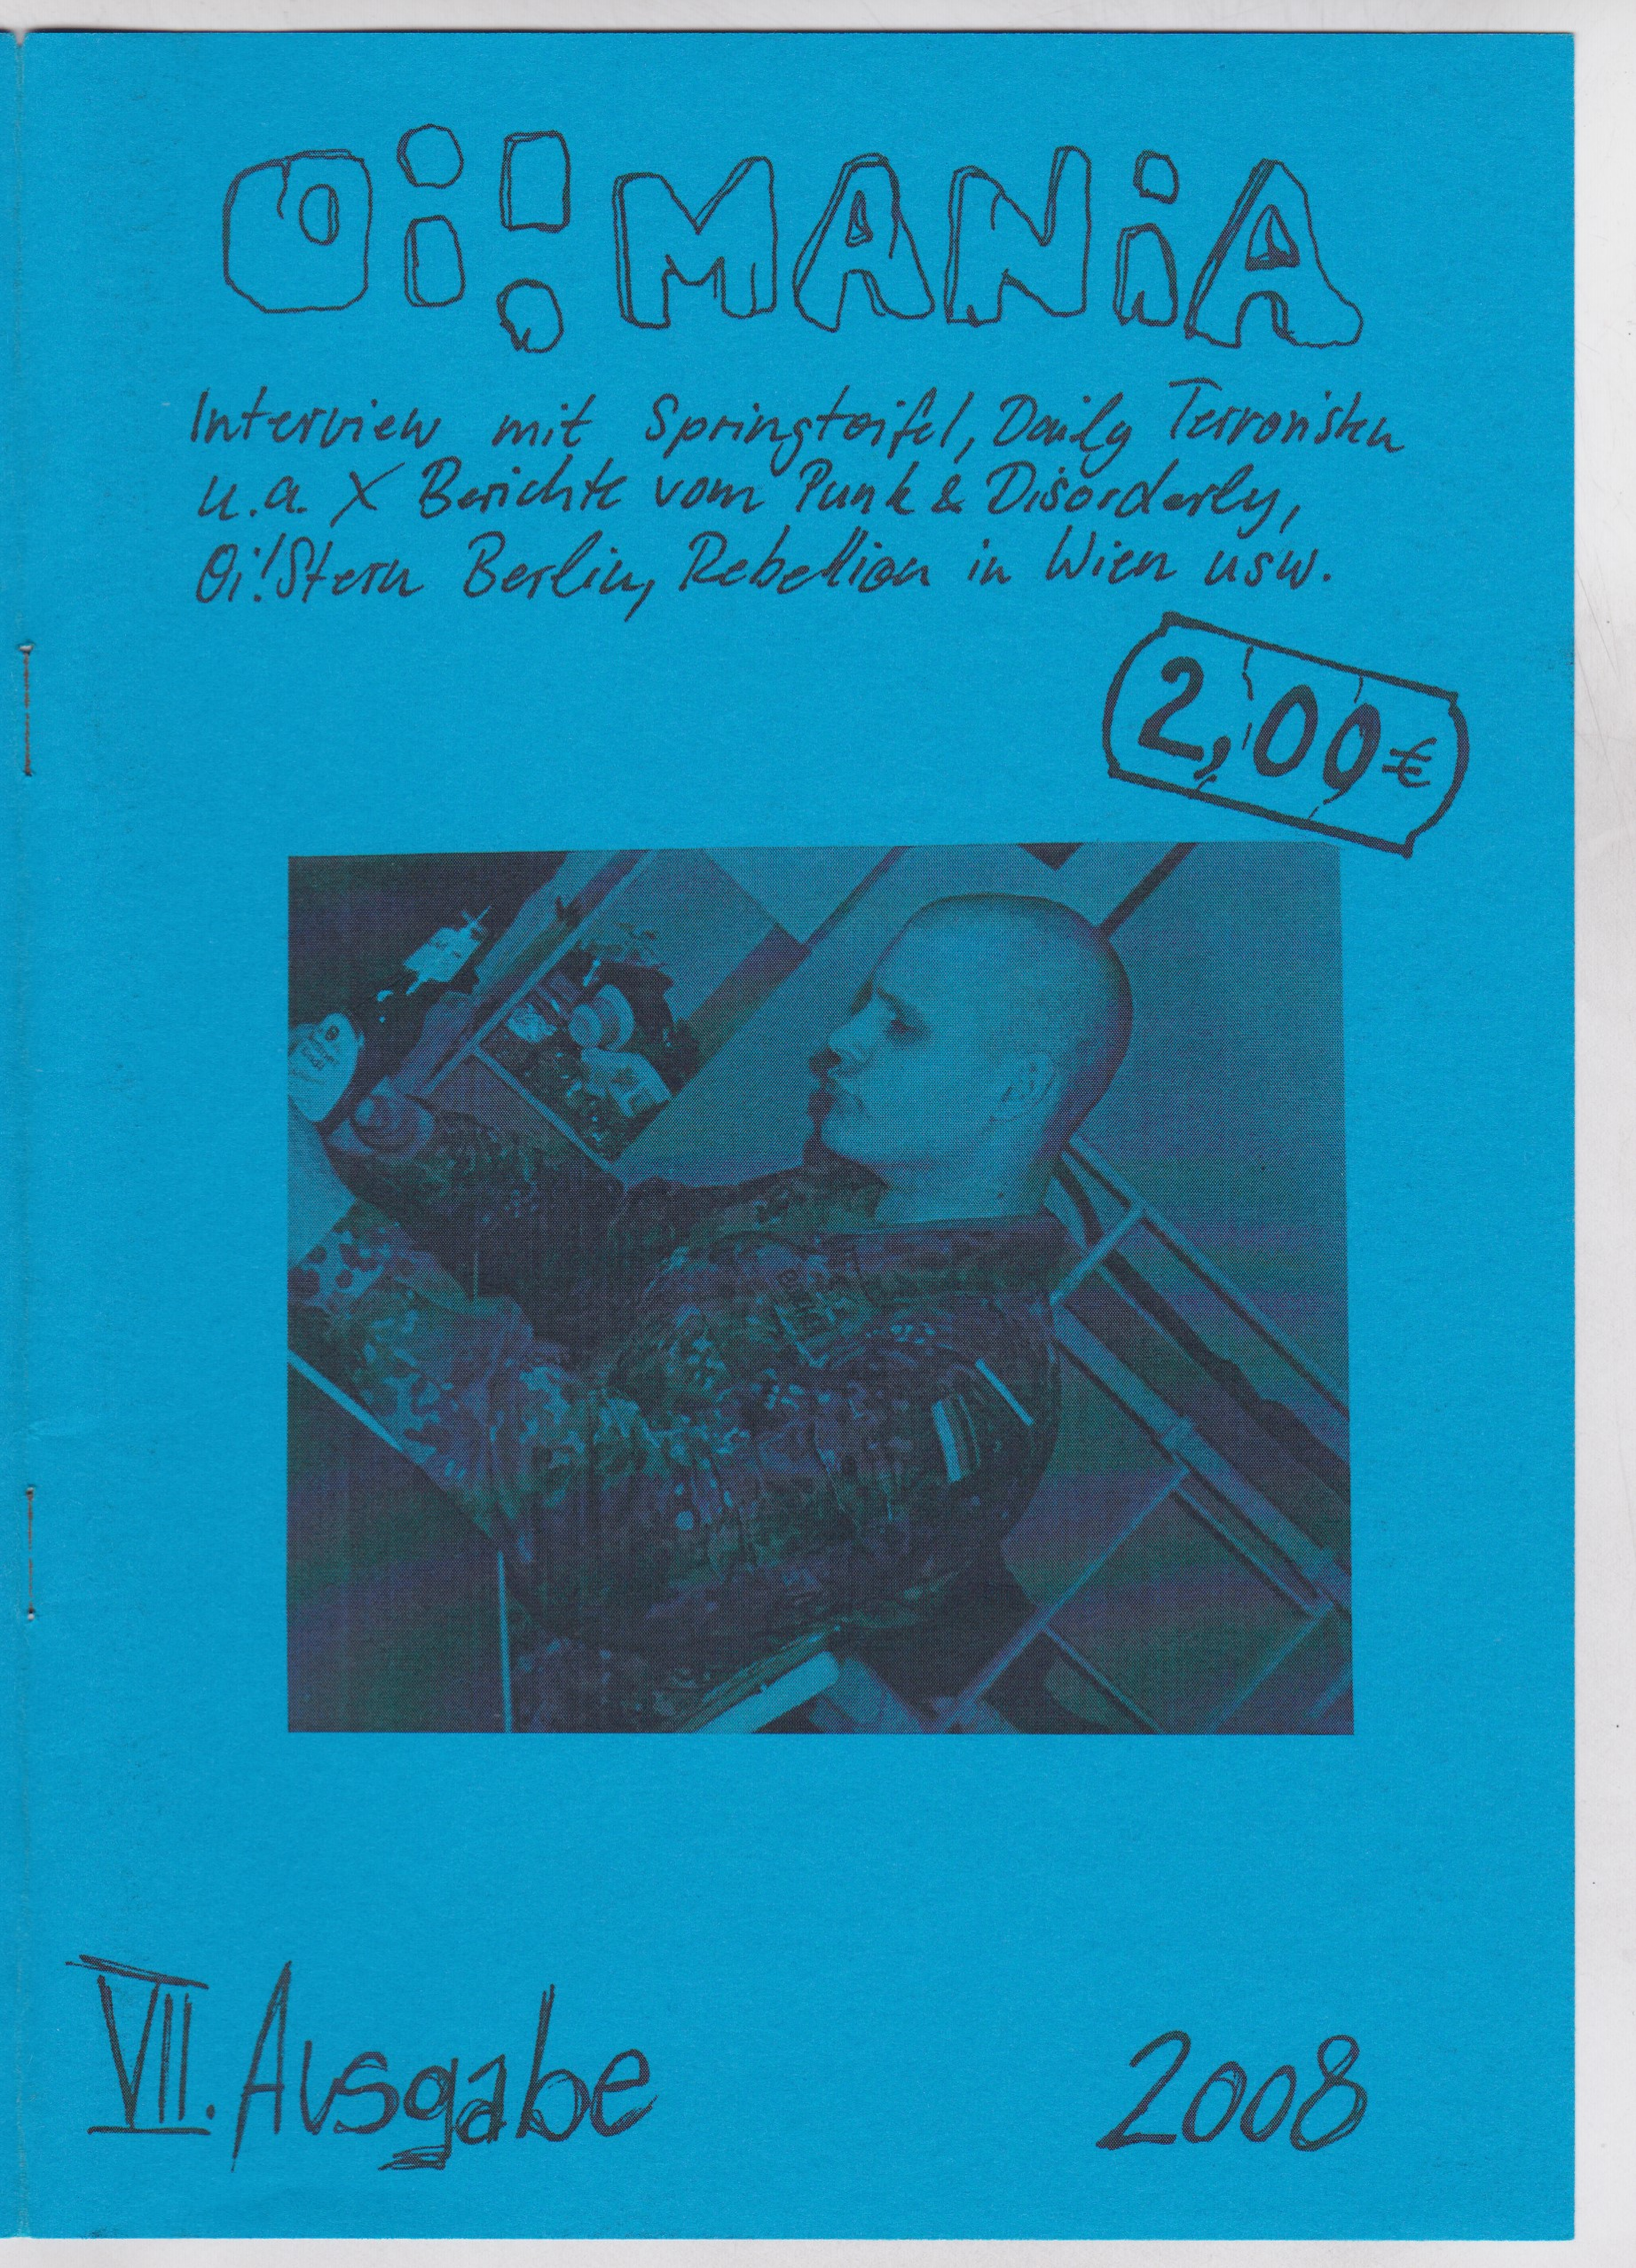 Oi! MANiA
Interview mit Springtoifel, Daily Terroristen
u.a. X Berichte vom Punk & Disorderly,
Oi!Stern Berlin, Rebellion in Wien usw.
2,00€
VII. Ausgabe
2008